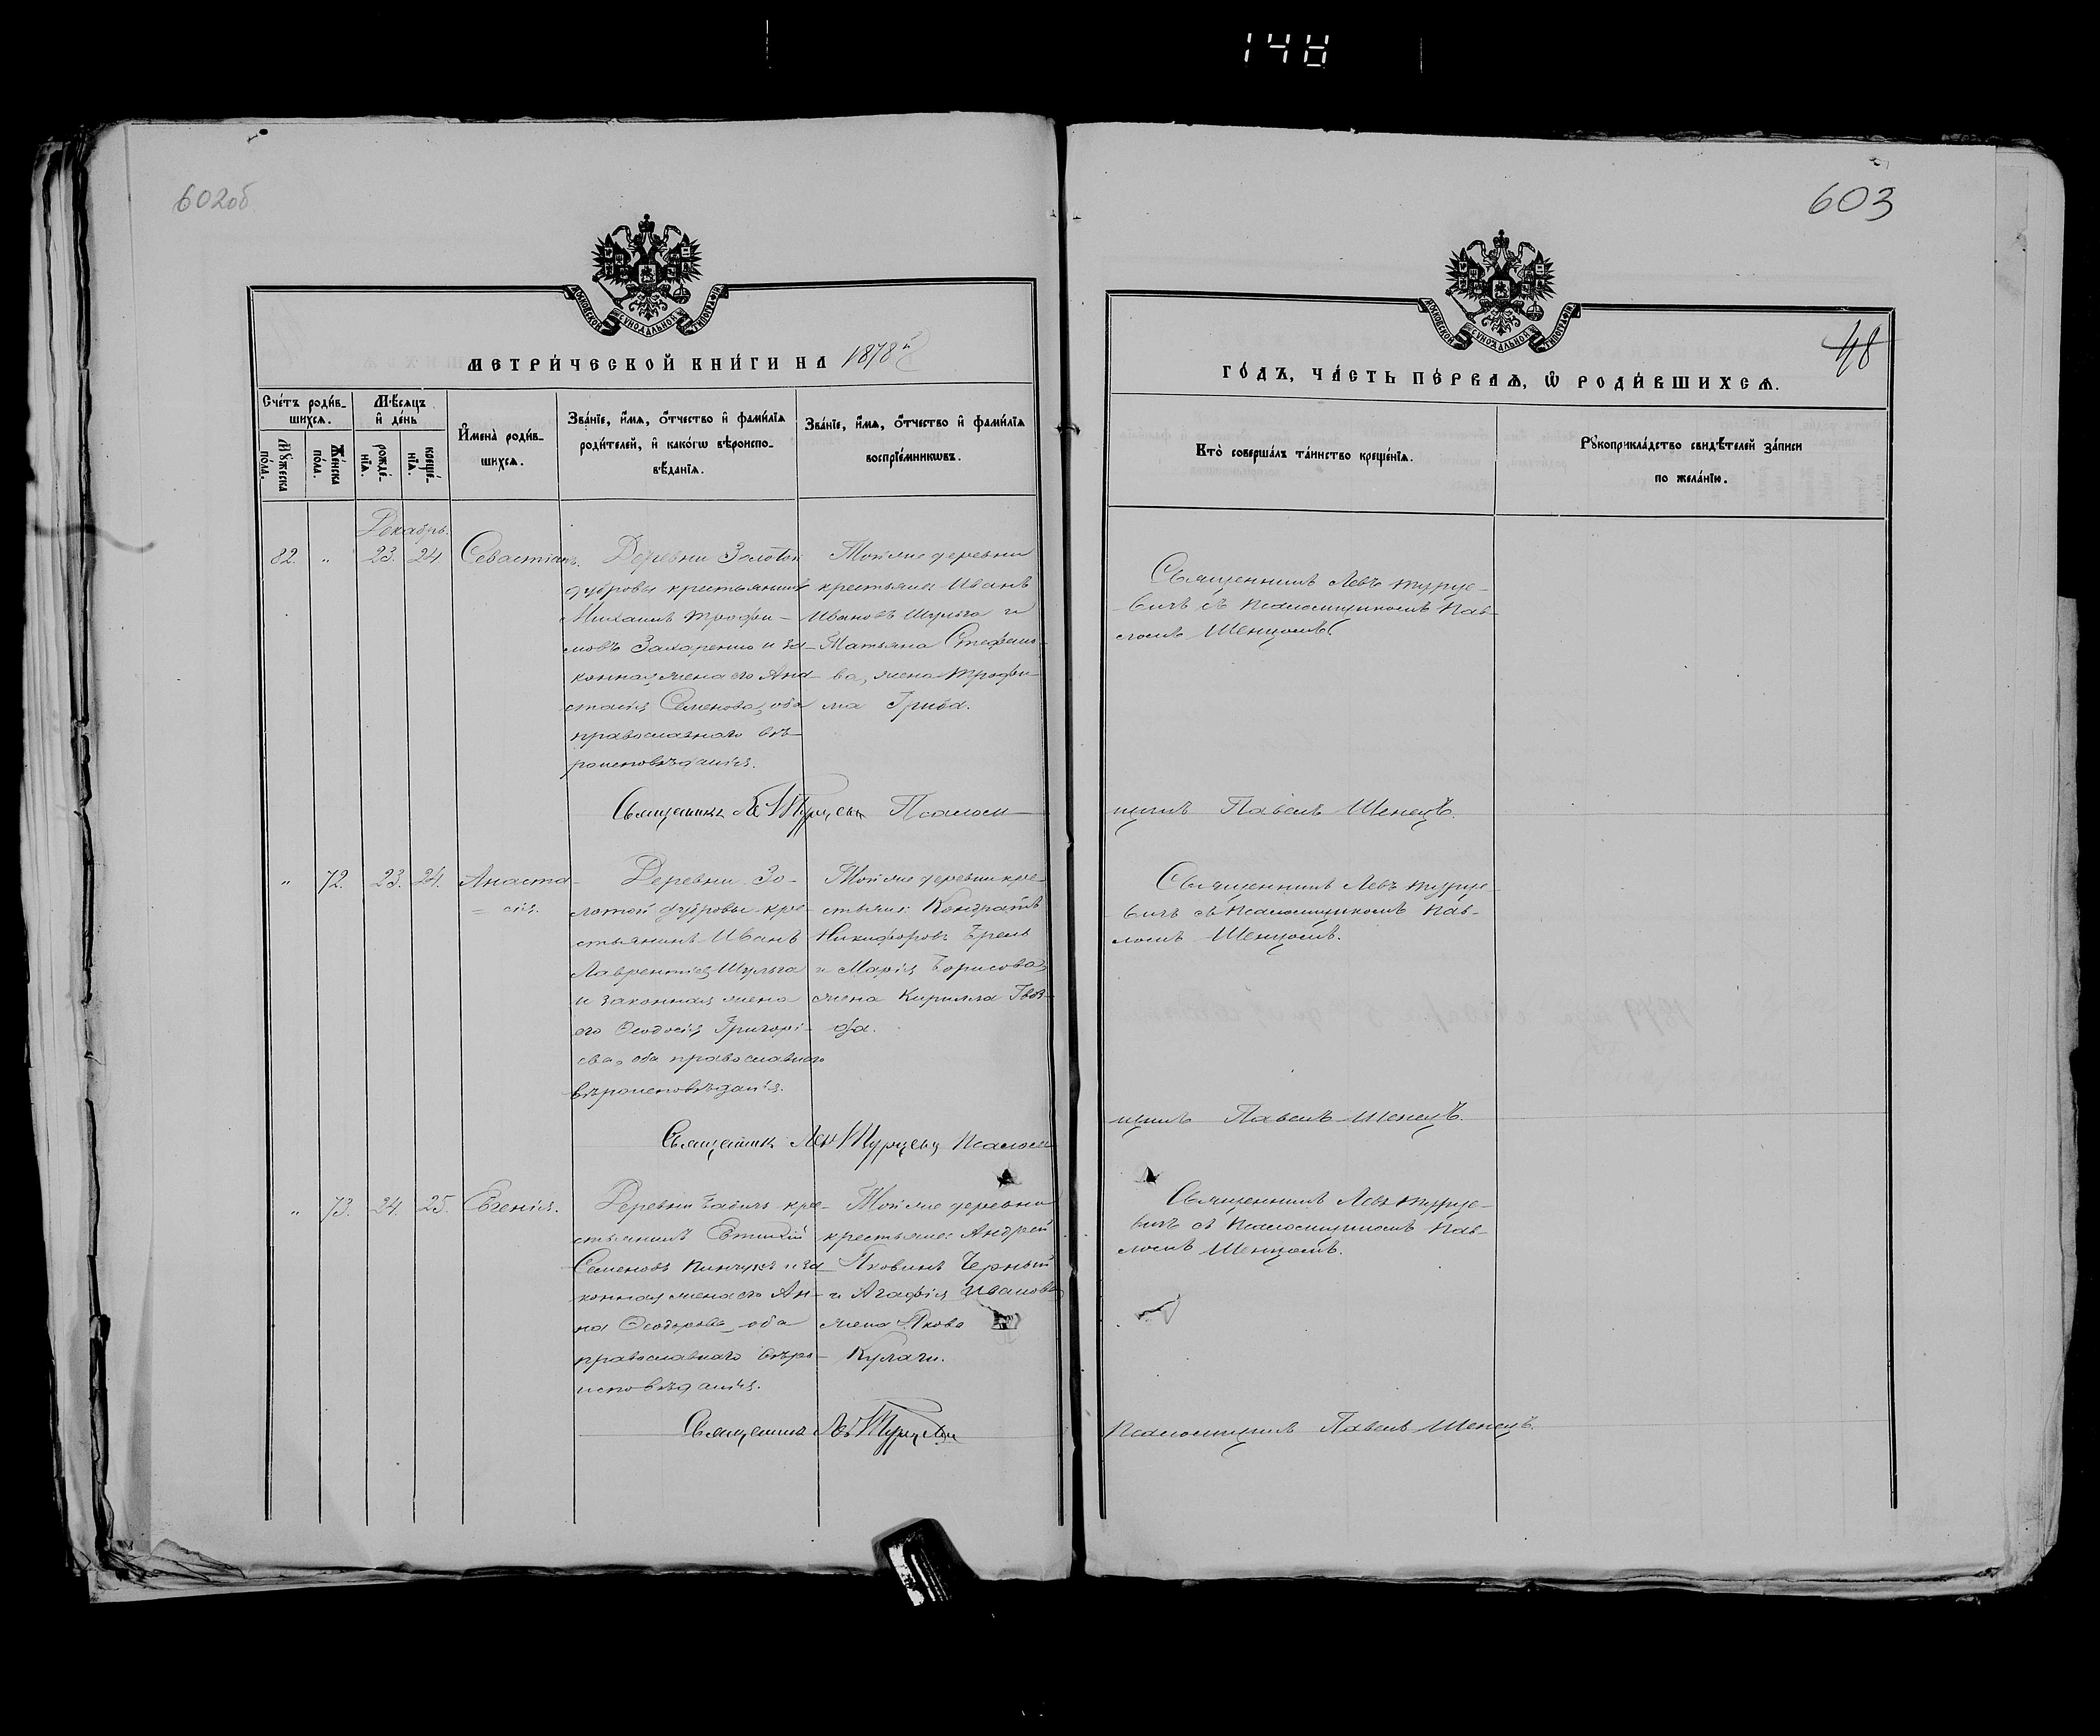 148
602об
603
48
МОСКОВСКОЙ СѴНОДАЛЬНОЙ ТИПОГРАФІИ
МОСКОВСКОЙ СѴНОДАЛЬНОЙ ТИПОГРАФІИ
МЕТРИ́ЧЕСКОЙ КНИ́ГИ НА 1878й
ГО́ДЪ, ЧА́СТЬ ПЕ́РВАѦ, Ѡ РОДИ́ВШИХСѦ.
Сче́тъ роди́в-
шихсѧ.
Мꙋ́жеска
по́ла.
Же́нска
по́ла.
Мѣ́сѧцъ
и҆ де́нь
рожде́-
нїѧ.
креще́-
нїѧ.
И҆мена̀ роди́в-
шихсѧ.
Зва́нїе, и҆́мѧ, ѻ҆́тчество и҆ фами́лїѧ
роди́телей, и҆ како́гѡ вѣроиспо-
вѣ́данїѧ.
Зва́нїе, и҆́мѧ, ѻ҆́тчество и҆ фами́лїѧ
воспрїе́мникѡвъ.
Кто̀ соверша́лъ та́инство креще́нїѧ.
Рꙋкоприкла́дство свидѣ́телей за́писи
по жела́нїю.
Декабрь.
82. „ 23. 24. Севастіанъ.
Деревни Золотой
дубровы крестьянинъ
Михаилъ Трофи-
мовъ Захаренко и за-
конная жена его Ана-
стасія Семенова, оба
православного вѣ-
роисповѣданія.
Той же деревни
крестьяне: Иванъ
Ивановъ Шульга и
Татьяна Стефано-
ва, жена Трофи-
ма Гриба.
Священникъ Левъ Турце-
вичъ съ Псаломщикомъ Пав-
ломъ Шенцомъ.
Священникъ Левъ Турцевичъ Псалом-
щикъ Павелъ Шенецъ.
„ 72. 23. 24. Анаста-
сія.
Деревни Зо-
лотой дубровы кре-
стьянинъ Иванъ
Лаврентіевъ Шульга
и законная жена
его Ѳеодосія Григорі-
ева, оба православного
вѣроисповѣданія.
Той же деревни кре-
стьяне: Кондратъ
Никифоровъ Брель
и Марія Борисова,
жена Кирилла Гвоз-
да.
Священникъ Левъ Турце-
вичъ съ Псаломщикомъ Пав-
ломъ Шенцомъ.
Священникъ Левъ Турцевичъ Псалом-
щикъ Павелъ Шенецъ.
„ 73. 24. 25. Евгенія.
Деревни Бабичъ кре-
стьянинъ Евтихій
Семеновъ Пинчукъ и за-
конная жена его Ан-
на Ѳеодорова, оба
православного вѣро-
исповѣданія.
Той же деревни
крестьяне: Андрей
Яковинъ Черный
и Агафія Иванова
жена Якова
Кулаги.
Священникъ Левъ Турце-
вичъ съ Псаломщикомъ Пав-
ломъ Шенцомъ.
Священникъ Левъ Турцевичъ
Псаломщикъ Павелъ Шенецъ.